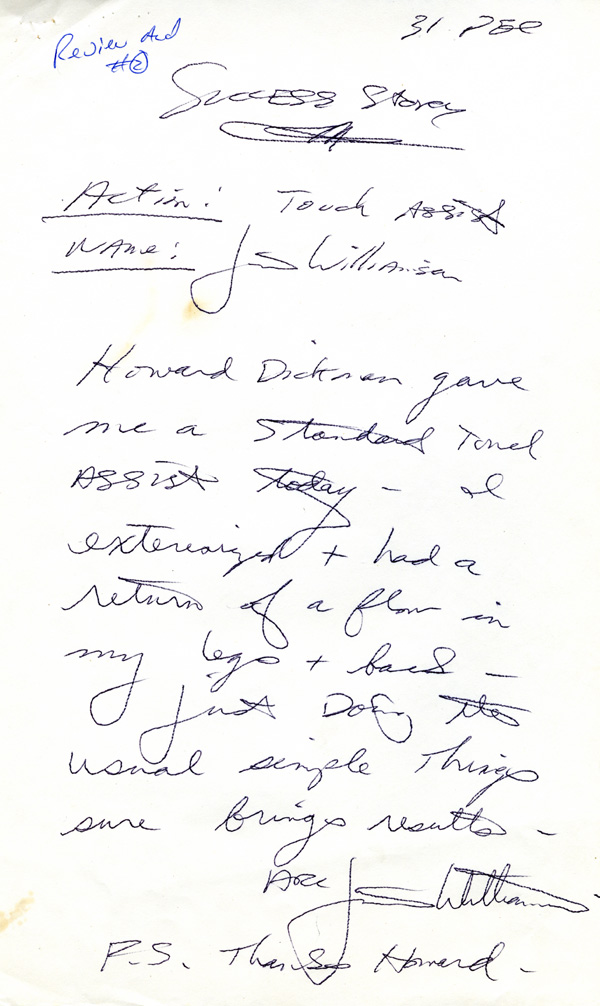 31 DEC
Review Aud
#2
Success Story
Action: Touch Assist
Name: Jim Williamson
Howard Dickman gave
me a Standard Touch
Assist today - I
exteriorized + had a
return of a flow in
my legs + back -
just Doing the
usual simple Things
sure brings results -
ARC Jim Williamson
P.S. Thanks Howard -